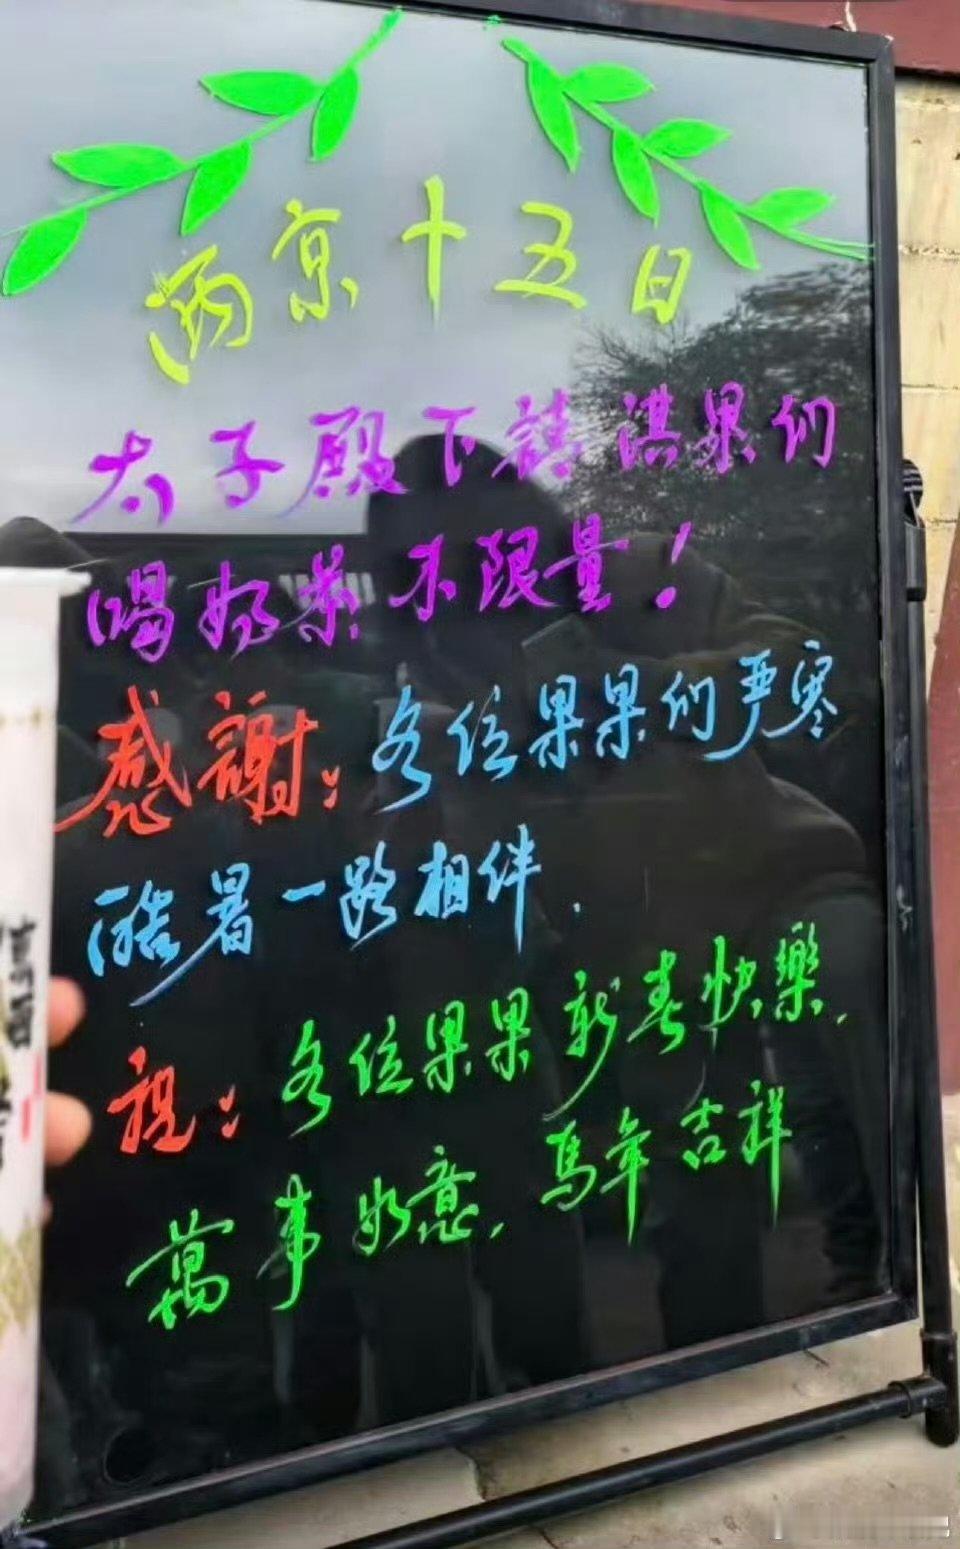 两京十五日
太子殿下請洪果们
喝奶茶不限量！
感謝：各位果果们严寒
酷暑一路相伴.
祝：各位果果新春快樂.
萬事如意.馬年吉祥